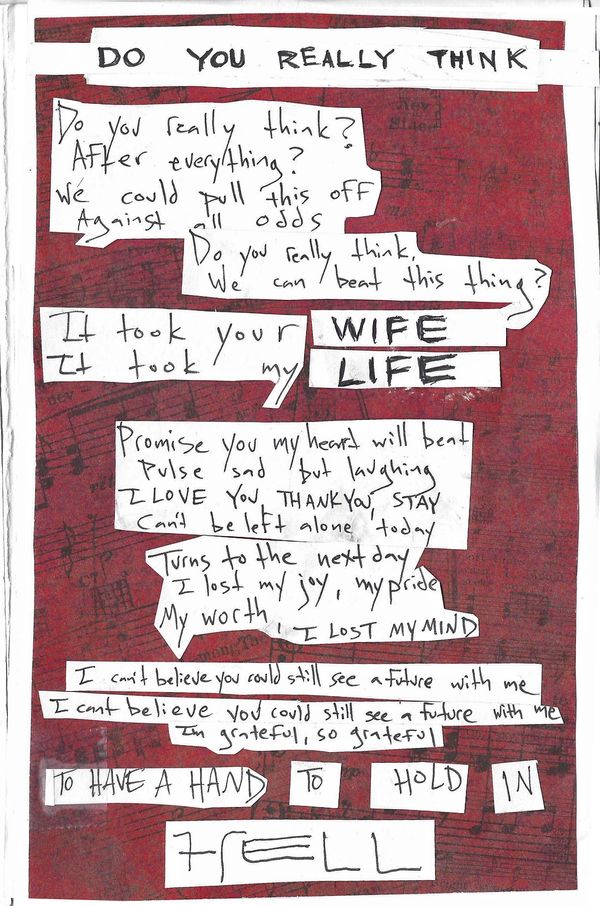 DO YOU REALLY THINK
Do you really think?
After everything?
We could pull this off
Against all odds
Do you really think,
We can beat this thing?
It took your WIFE
It took my LIFE
Promise you my heart will beat
Pulse sad but laughing
I LOVE YOU, THANK YOU, STAY
Can't be left alone today
Turns to the next day
I lost my joy, my pride
My worth
I LOST MY MIND
I can't believe you could still see a future with me
I cant believe you could still see a future with me
I'm grateful, so grateful
TO HAVE A HAND TO HOLD IN
HELL